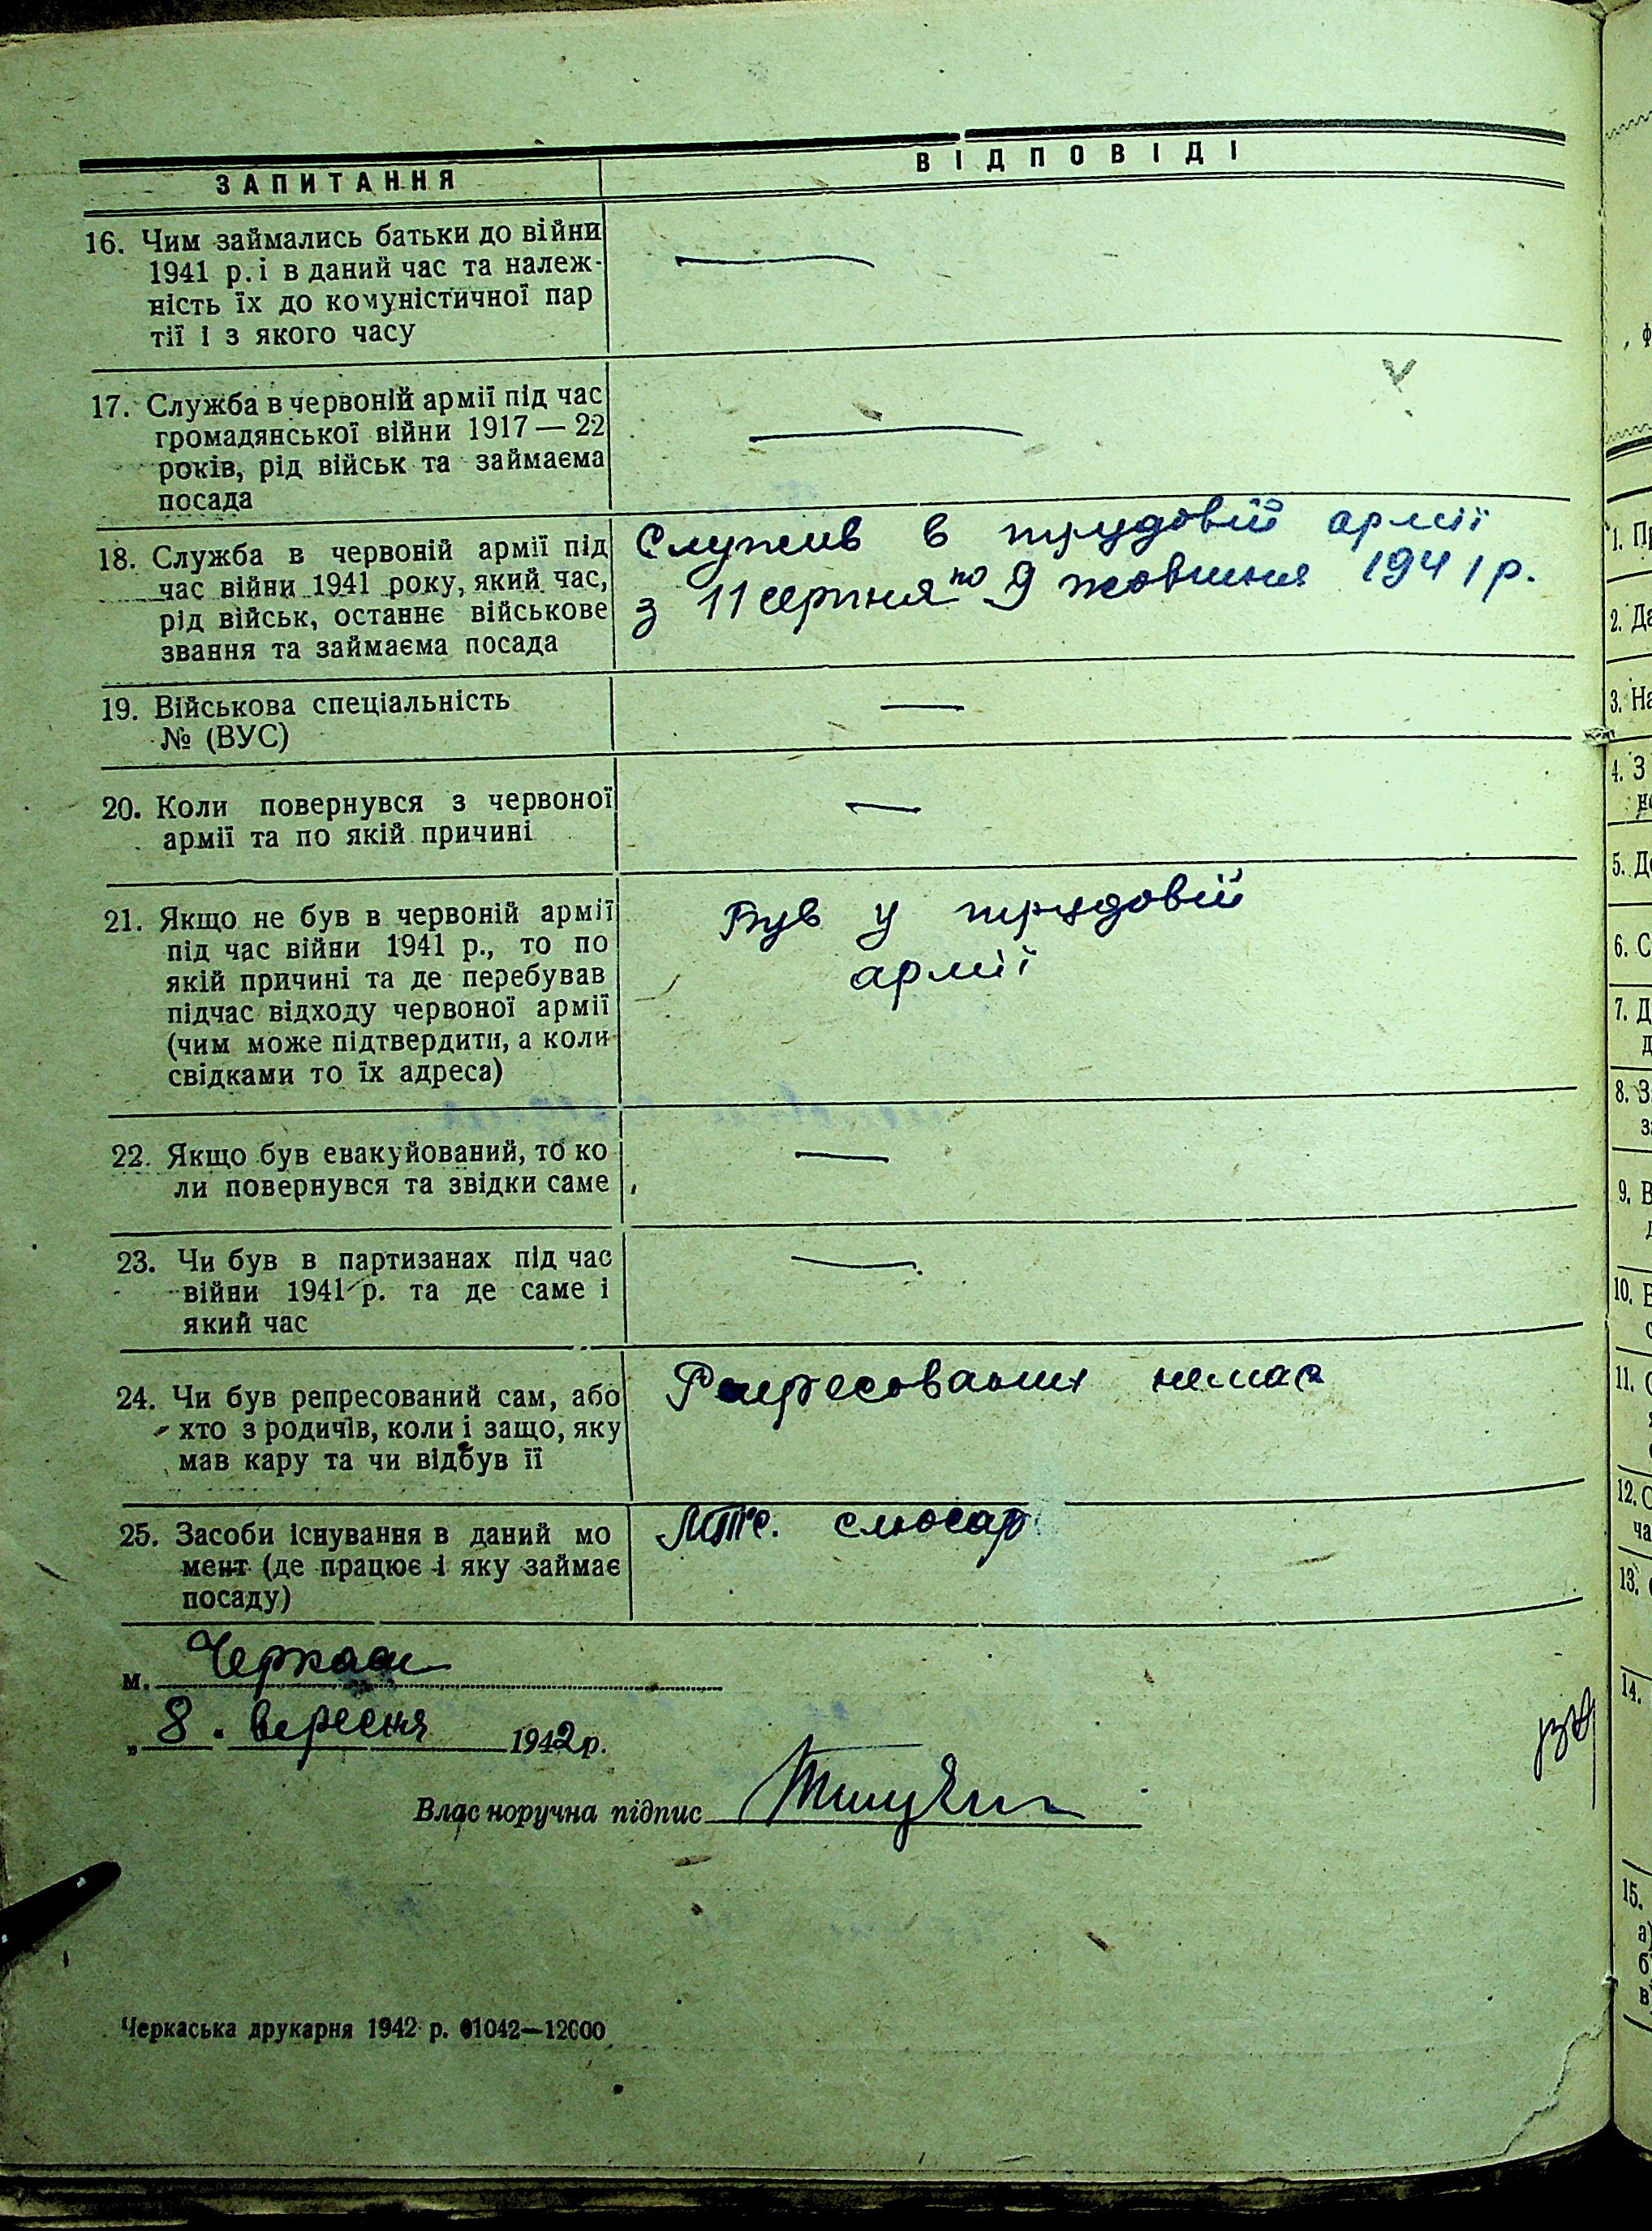 ЗАПИТАННЯ
ВІДПОВІДІ
16. Чим займались батьки до війни
1941 р. і в даний час та належ-
ність їх до комуністичної пар
тії і з якого часу
17. Служба в червоній армії під час
громадянської війни 1917 — 22
років, рід військ та займаєма
посада
18. Служба в червоній армії під
час війни 1941 року, який час,
рід військ, останнє військове
звання та займаєма посада
Служив в трудовій армії
з 11 серпня по 9 жовтня 1941 р.
19. Військова спеціальність
№ (ВУС)
20. Коли повернувся з червоної
армії та по якій причині
21. Якщо не був в червоній армії
під час війни 1941 р., то по
якій причині та де перебував
підчас відходу червоної армії
(чим може підтвердити, а коли
свідками то їх адреса)
Був у трудовій
армії
22. Якщо був евакуйований, то ко
ли повернувся та звідки саме
23. Чи був в партизанах під час
війни 1941 р. та де саме і
який час
24. Чи був репресований сам, або
хто з родичів, коли і защо, яку
мав кару та чи відбув її
Репресованих немає
25. Засоби існування в даний мо
мент (де працює і яку займає
посаду)
слюсар
м. Черкаси
„ 8 . вересня 1942 р.
Влас норучна підпис
Черкаська друкарня 1942 р. 01042—12000
1. Пр
2. Да
3. На
4. З
5. Д
6. С
7. Д
8. З
9. В
10. В
11. С
12. С
ча
13.
14.
15.
а)
б
в